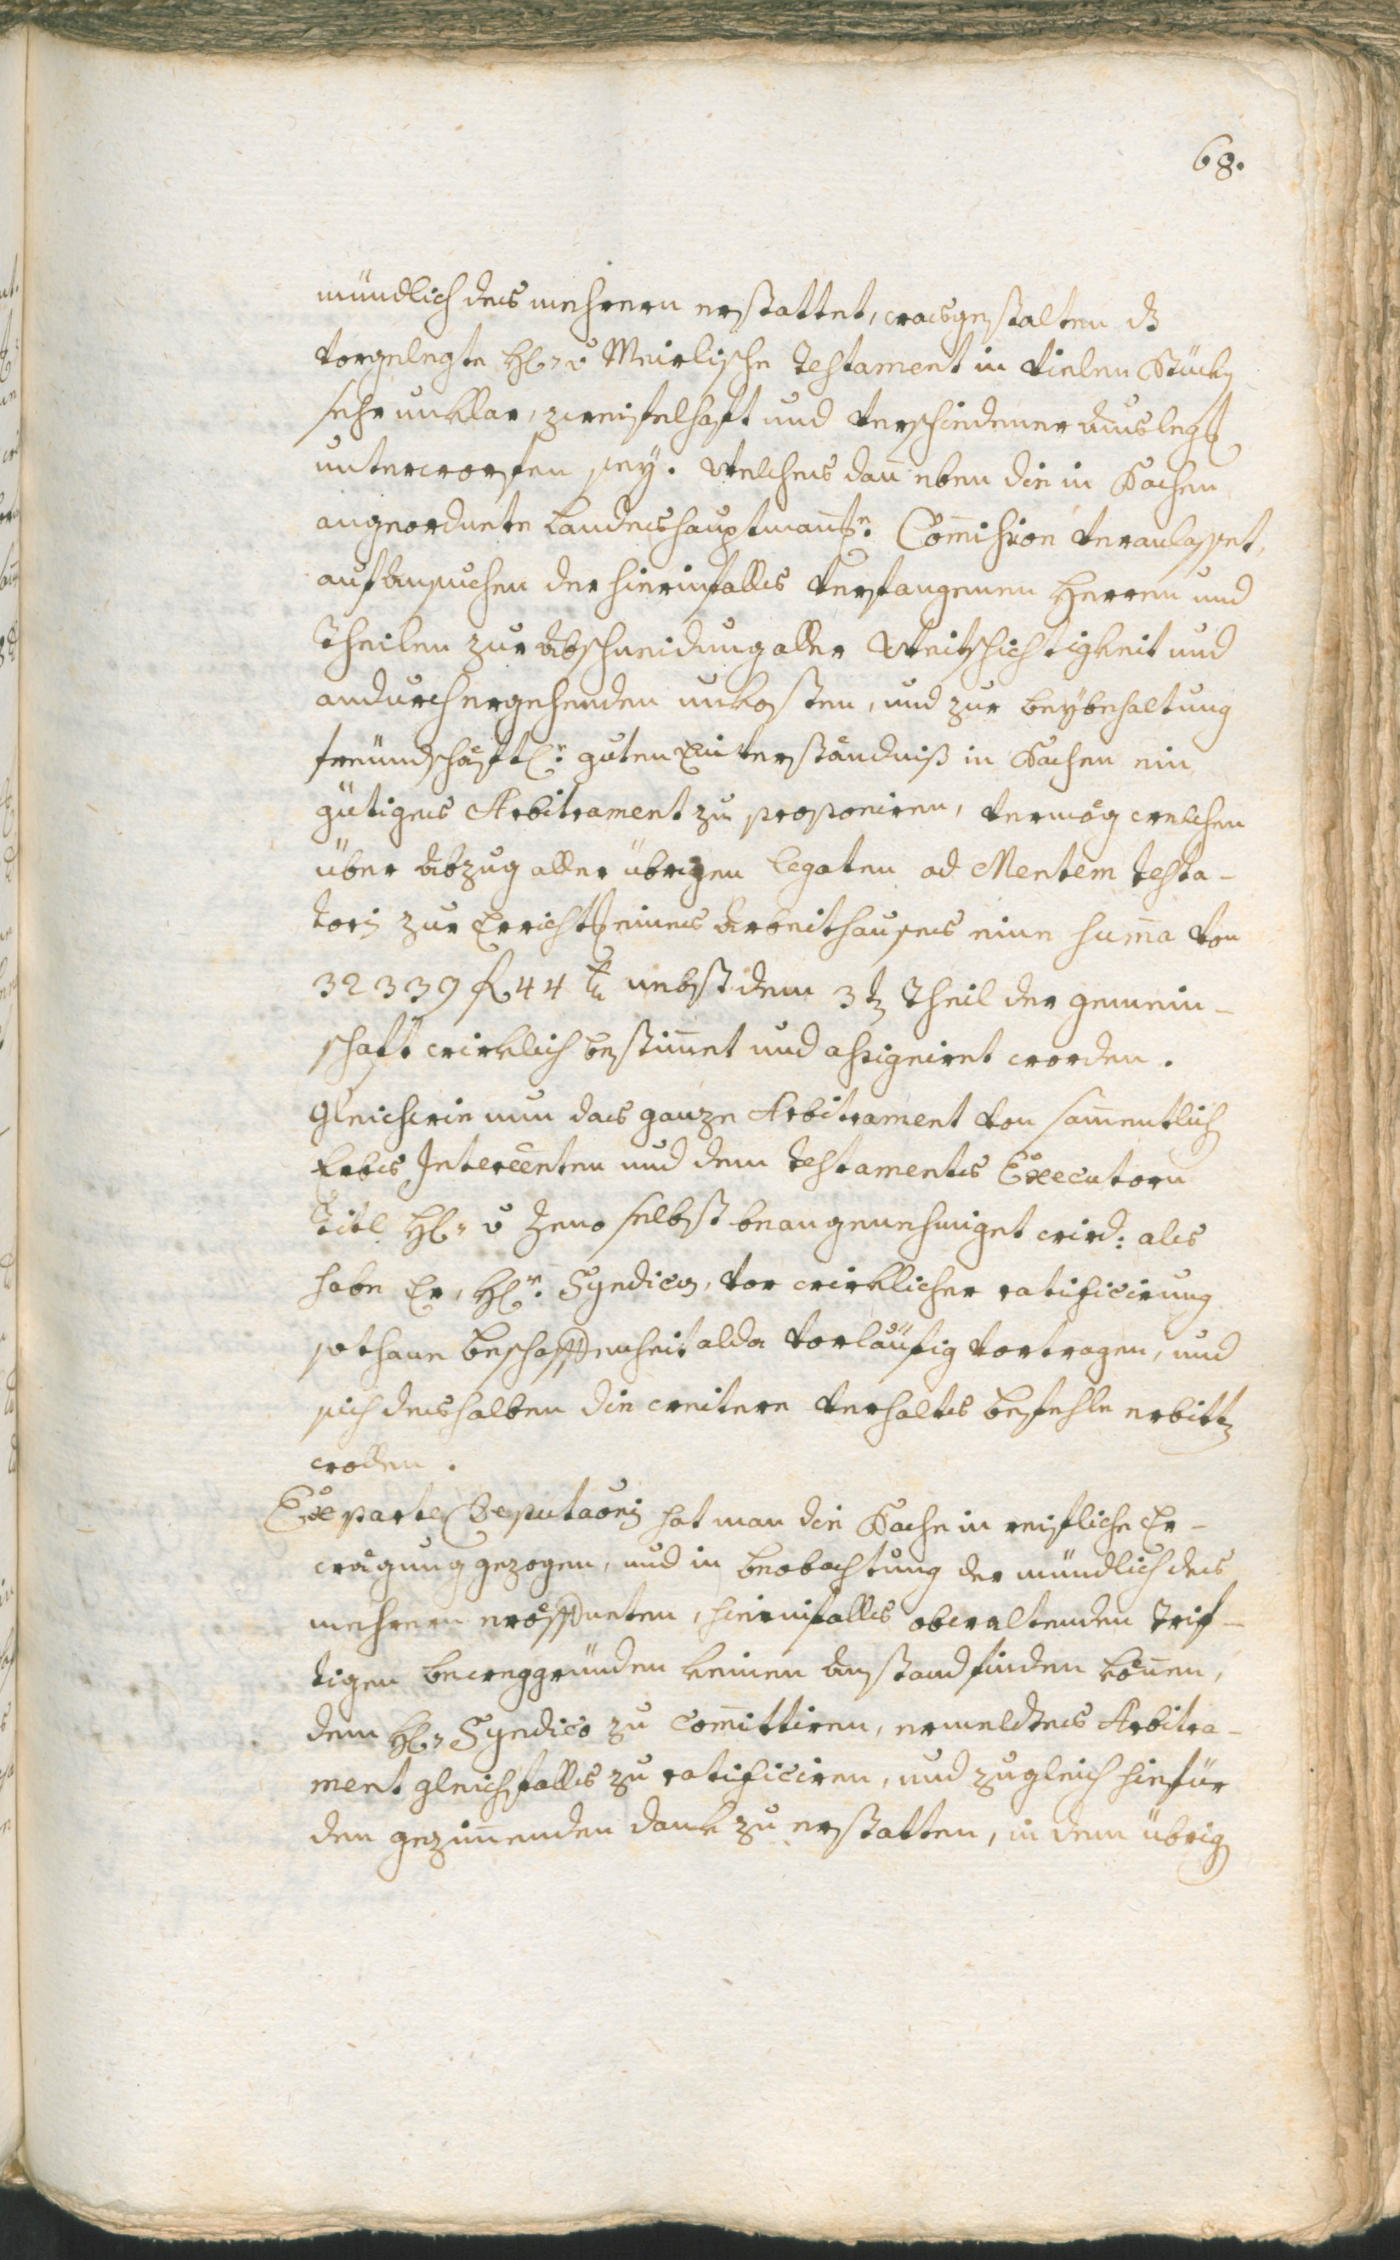 68.
mündlich des mehrern erstattet, wasgestalten dz
vorgelegte H: v Meirlische Testament in vielen Stückn
sehr unklar, zweifelhaft und verschiedener Auslegg
unterworfen sey. Welches dan̄ eben die in Sachen
angeordnete Landeshauptman̄sch. Com̄ission veranlasset,
auf Ansuchen der hierinfalls verfangenen Herren und
Theilen zur Abschneidung aller Weitschichtigkeit und
andurch ergehenden unkosten, und zur beybehaltung
freündschäftlr. guten Einverständniß in Sachen ein
gütiges Arbitrament zu proponiren, vermög welchen
über Abzug aller übrigen Legaten ad Mentem Testa-
toris zur Errichtg eines Arbeithauses eine Sum̄a von
32339 f 44 xr nebst dem 3tn Theil der gemein-
schaft wirklich bestim̄et und assigniret worden.
Gleichwie nun das ganze Arbitrament von sam̄entlich
Erbs Interessenten und dem Testaments Executorn
Titl H: v Zeno selbst beangenehmiget wird: als
habe Er, Hr. Syndicus, vor wirklicher ratificirung
sothane beschaffenheit alda vorläüfig vortragen, und
sich deshalben die weitere verhalts befehle erbittn
wollen.
Ex parte Deputaōnis hat man die Sache in reifliche Er-
wägung gezogen, und in beobachtung der mündlich des
mehrern eröffneten, hierinfalls obwaltenden trif-
tigen beweggründen keinen Anstand finden kön̄en,
dem H: Syndico zu com̄ittiren, ermeldtes Arbitra-
ment gleichfalls zu ratificiren, und zugleich hiefür
den gezim̄enden dank zu erstatten, in dem übrign